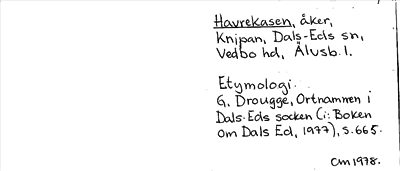 Havrekasen, åker,
Knipan, Dals-Eds sn,
Vedbo hd, Älvsb. l.
Etymologi.
G. Drougge, Ortnamnen i
Dals-Eds socken (i: Boken
om Dals Ed, 1977), s. 665.
CM 1978.